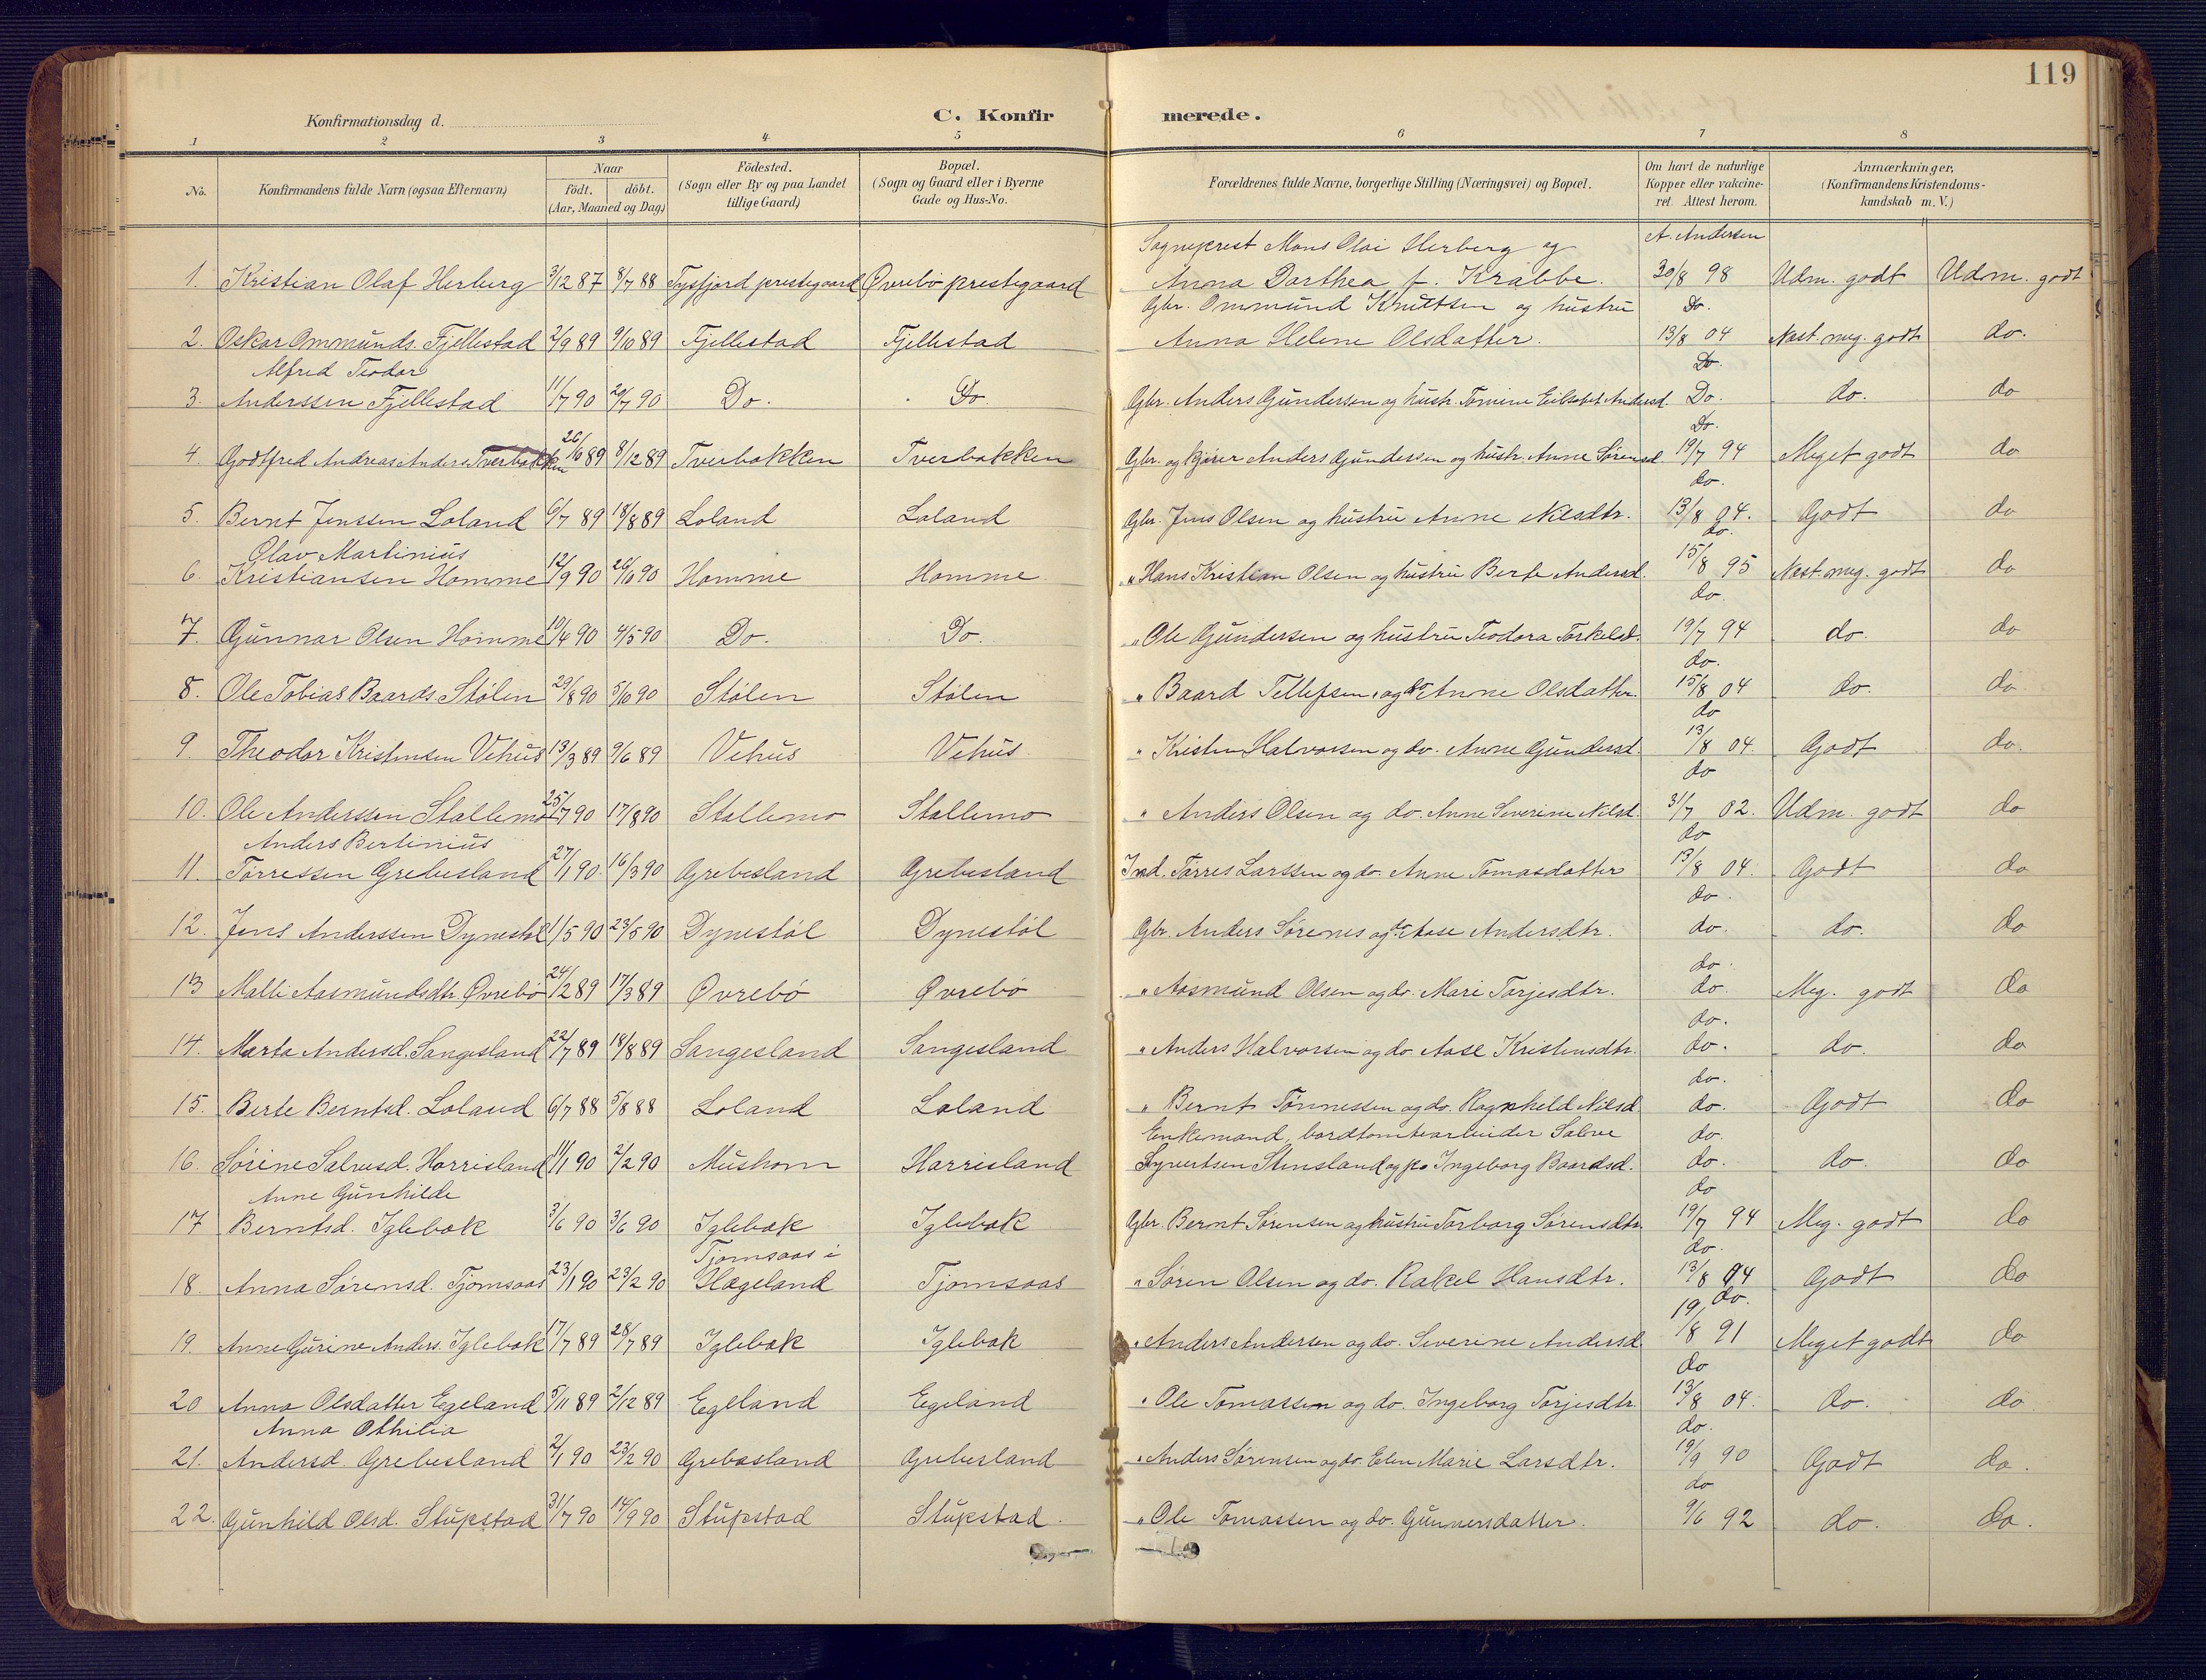 119
Konfirmationsdag d.
C. Konfirmerede.
1 2 3 4 5 6 7 8
No. Konfirmandens fulde Navn (ogsaa Efternavn) Naar födt. döbt. (Aar, Maaned og Dag) Födested. (Sogn eller By og paa Landet tillige Gaard) Bopæl. (Sogn og Gaard eller i Byerne Gade og Hus-No. Forældrenes fulde Navne, borgerlige Stilling (Næringsvei) og Bopæl. Om havt de naturlige Kopper eller vakcineret. Attest herom. Anmærkninger, (Konfirmandens Kristendomskundskab m. V.)
Sogneprest Mons Olai Herberg og A. Andersen
1. Kristian Olaf Herberg 3/12 87 8/7 88 Tysfjord prestegaard Øvrebö prestegaard Anna Dorthea f. Krabbe. 30/8 98 Udm. godt Udm. godt
Gbr. Ommund Knutsen og hustru Do.
2. Oskar Ommunds. Fjellestad 2/9 89 9/10 89 Fjellestad Fjellestad Anna Helene Olsdatter. 13/8 04 Næst. meg. godt do.
Alfred Teodor Do.
3. Anderssen Fjellestad 11/7 90 20/7 90 Do. Do. Gbr. Anders Gundersen og hustr. Tomine Elisabet Andersd. Do. do. do
Do.
4. Godtfred Andreas Anders. Tverbakken 26/10 89 8/12 89 Tverbakken Tverbakken Gbr. og kjører Anders Gundersen og hustr. Anne Sørensd. 19/7 94 Meget godt do
do.
5. Bernt Jenssen Loland 6/7 89 18/8 89 Loland Loland Gbr. Jens Olsen og hustru Anne Nilsdtr. 13/8 04. Godt do
Olav Martinius do.
6. Kristiansen Homme 12/9 90 26/10 90 Homme Homme " Hans Kristian Olsen og hustru Berte Andersd. 15/8 95 Næst. meg. godt do
do.
7. Gunnar Olsen Homme 10/4 90 4/5 90 Do. Do. " Ole Gundersen og hustru Teodora Torkelsd. 19/7 94 do. do
do.
8. Ole Tobias Baards. Stölen 29/8 90 5/10 90 Stölen Stölen " Baard Tellefsen og do Anne Olsdatter. 15/8 04 do. do
do
9. Theodor Kristensen Vehus 13/3 89 9/6 89 Vehus Vehus " Kristen Halvorsen og do. Anne Gundersd. 13/8 04. Godt do.
do
10. Ole Anderssen Stallemo 25/7 90 17/8 90 Stallemo Stallemo " Anders Olsen og do. Anne Severine Nilsd. 31/7 02. Udm. godt do
Anders Bertinius do
11. Tørressen Grebesland 27/1 90 16/3 90 Grebesland Grebesland Ind. Tørres Larssen og do. Anne Tomasdatter 13/8 04. Godt do
do.
12. Jens Anderssen Dynestöl 11/5 90 23/5 90 Dynestöl Dynestöl Gbr. Anders Sörenes og do Aase Andersdtr. do. do. do
do.
13 Malli Aasmundsdtr. Øvrebö 24/2 89 17/3 89 Øvrebö Øvrebö " Aasmund Olsen og do. Mari Torjesdtr. do. Meg. godt do
do.
14. Marta Andersd. Sangesland 22/7 89 18/8 89 Sangesland Sangesland " Anders Halvorsen og do. Aase Kristensdtr. do. do. do
do.
15. Berte Berntsd. Loland 6/7 88 5/8 88 Loland Loland " Bernt Tönnessen og do. Ragnhild Nilsd. do. Godt do
Enkemand, bordtomtearbeider Salve do.
16. Sörine Salvesd. Harrisland 11/1 90 2/2 90 Mushom Harrisland Syvertsen Stensland og p. Ingeborg Baardsd. do. do. do
Anne Gunhilde do
17 Berntsd. Iglebæk 3/6 90 3/6 90 Iglebæk Iglebæk Gbr. Bernt Sørensen og hustru Torborg Sørensdtr. 19/7 94 Meg. godt do
Tjomsaas i do.
18. Anna Sørensd. Tjomsaas 23/1 90 23/2 90 Hægeland Tjomsaas " Søren Olsen og do. Rakel Hansdtr. 13/8 04 Godt do
do.
19. Anne Gurine Anders. Iglebæk 17/7 89 28/7 89 Iglebæk Iglebæk " Anders Andersen og do. Severine Andersd. 19/8 91 Meget godt do
do
20 Anna Olsdatter Egeland 5/11 89 2/12 89 Egeland Egeland " Ole Tomassen og do. Ingeborg Torjesdtr. 13/8 04. do. do
Anna Othilia do.
21. Andersd Grebesland 2/1 90 23/2 90 Grebesland Grebesland " Anders Sørensen og do. Elen Marie Larsdtr. 19/9 90 Godt do.
do
22. Gunhild Olsd. Stupstad 31/7 90 14/9 90 Stupstad Stupstad. " Ole Tomassen og do. Gunnersdatter. 9/6 92 do. do.